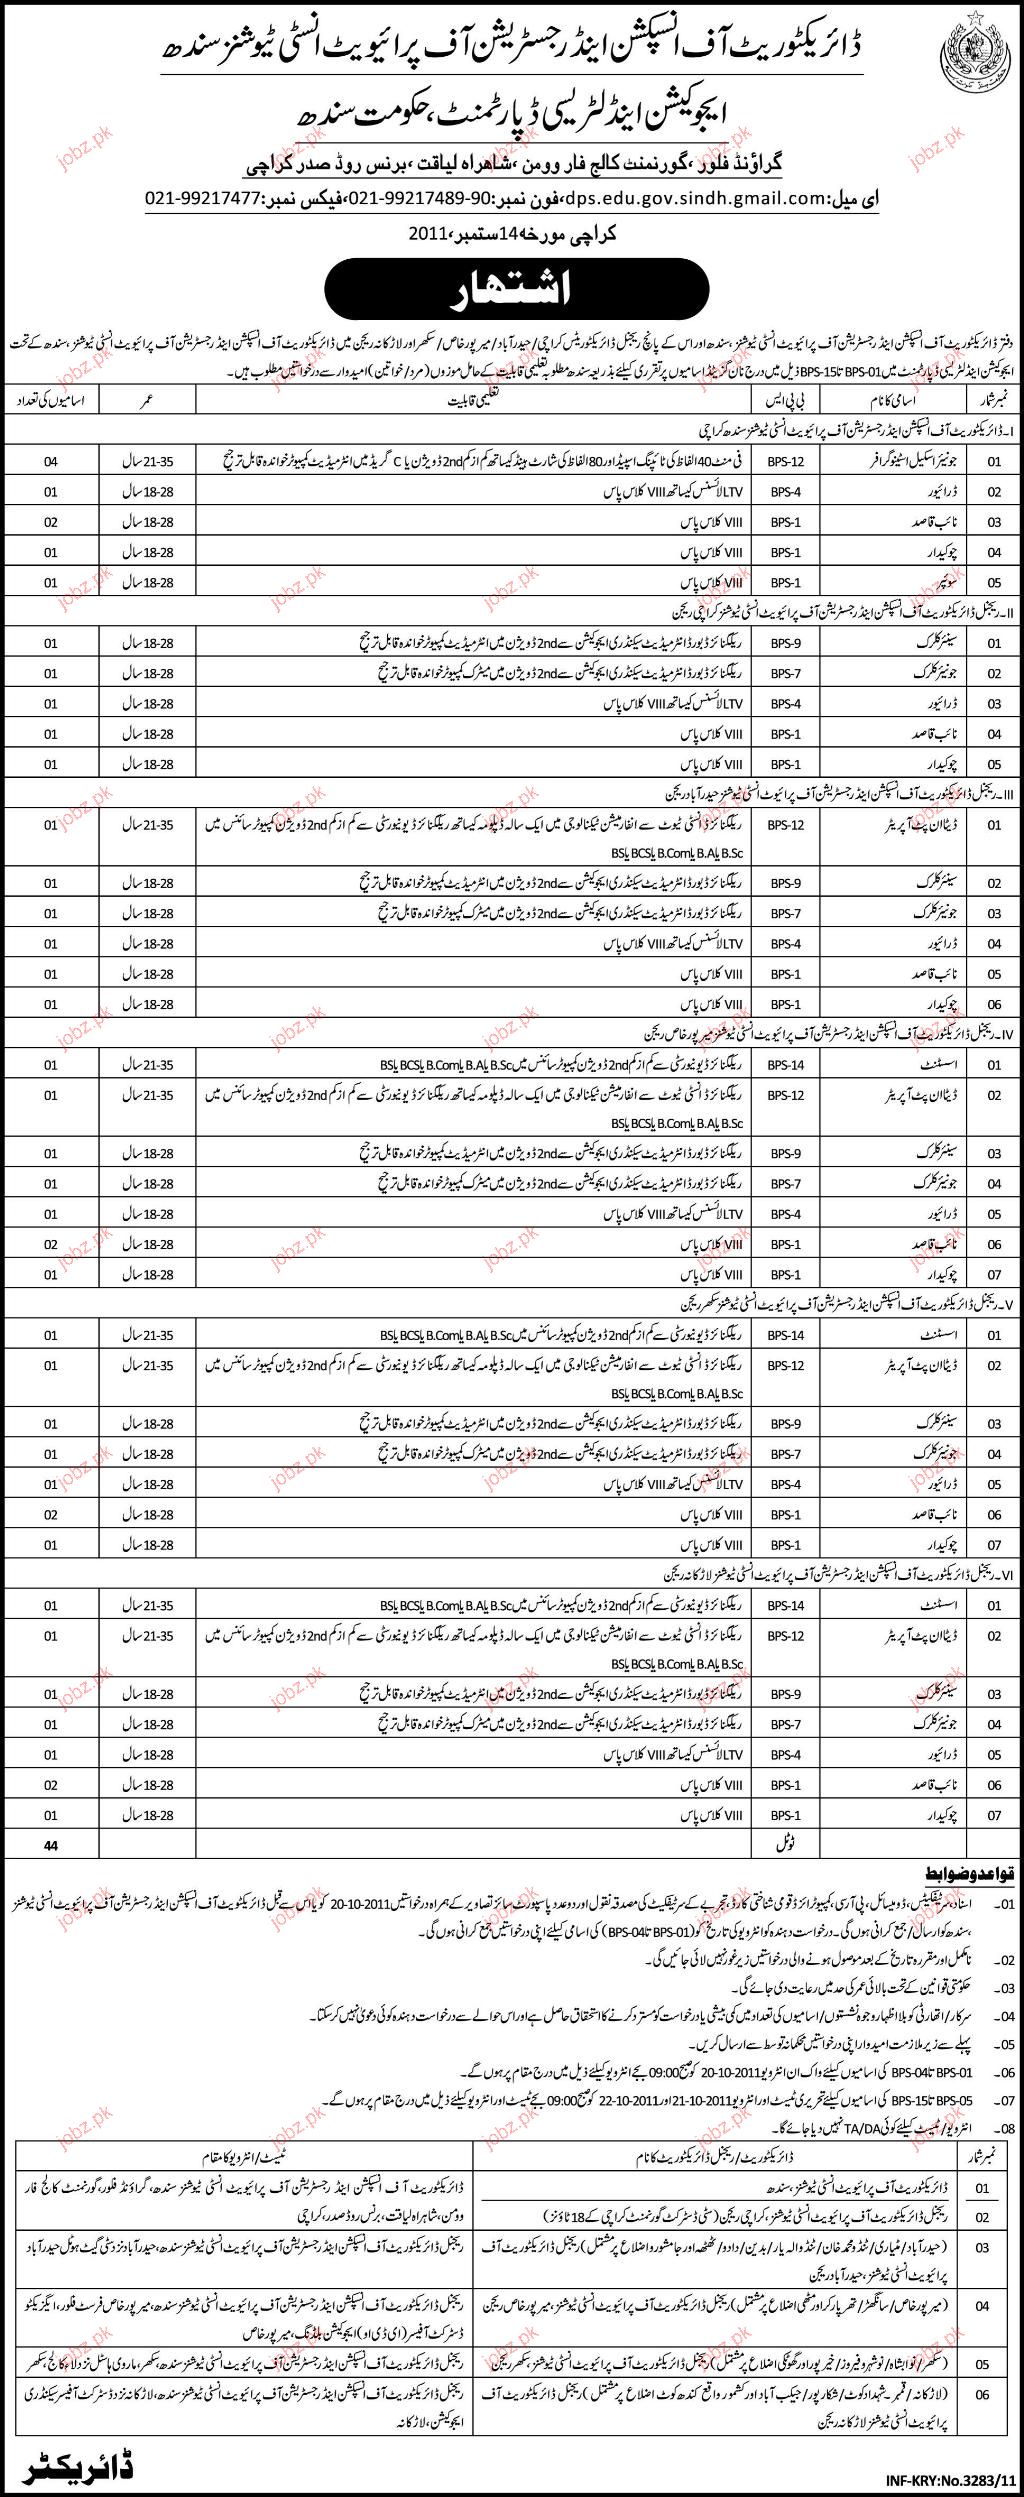 ڈائریکٹوریٹ آف انسپکشن اینڈ رجسٹریشن آف پرائیویٹ انسٹی ٹیوشنز سندھ
ایجوکیشن اینڈ لٹریسی ڈپارٹمنٹ، حکومت سندھ
گراؤنڈ فلور، گورنمنٹ کالج فار وومن، شاھراہ لیاقت، برنس روڈ صدر کراچی
ای میل: dps.edu.gov.sindh.gmail.com، فون نمبر: 021-99217489-90، فیکس نمبر: 021-99217477
کراچی مورخہ 14 ستمبر، 2011
اشتہار
دفتر ڈائریکٹوریٹ آف انسپکشن اینڈ رجسٹریشن آف پرائیویٹ انسٹی ٹیوشنز، سندھ اور اس کے پانچ ریجنل ڈائریکٹوریٹس کراچی/حیدرآباد/میرپور خاص/سکھر اور لاڑکانہ ریجن میں ڈائریکٹوریٹ آف انسپکشن اینڈ رجسٹریشن آف پرائیویٹ انسٹی ٹیوشنز، سندھ کے تحت
ایجوکیشن اینڈ لٹریسی ڈپارٹمنٹ میں BPS-01 تا BPS-15 ذیل میں درج نان گزیٹڈ اسامیوں پر تقرری کیلئے بذریعہ سندھ مطلوبہ تعلیمی قابلیت کے حامل موزوں (مرد/خواتین) امیدوار سے درخواستیں مطلوب ہیں۔
نمبر شمار اسامی کا نام بی پی ایس تعلیمی قابلیت عمر اسامیوں کی تعداد
I۔ ڈائریکٹوریٹ آف انسپکشن اینڈ رجسٹریشن آف پرائیویٹ انسٹی ٹیوشنز سندھ کراچی
01 جونیئر اسکیل اسٹینوگرافر BPS-12 فی منٹ 40 الفاظ کی ٹائپنگ اسپیڈ اور 80 الفاظ کی شارٹ ہینڈ کیساتھ کم از کم 2nd ڈویژن یا C گریڈ میں انٹرمیڈیٹ کمپیوٹر خواندہ قابل ترجیح 21-35 سال 04
02 ڈرائیور BPS-4 LTV لائسنس کیساتھ VIII کلاس پاس 18-28 سال 01
03 نائب قاصد BPS-1 VIII کلاس پاس 18-28 سال 02
04 چوکیدار BPS-1 VIII کلاس پاس 18-28 سال 01
05 سوئیپر BPS-1 VIII کلاس پاس 18-28 سال 01
II۔ ریجنل ڈائریکٹوریٹ آف انسپکشن اینڈ رجسٹریشن آف پرائیویٹ انسٹی ٹیوشنز کراچی ریجن
01 سینئر کلرک BPS-9 ریکگنائزڈ بورڈ انٹرمیڈیٹ سیکنڈری ایجوکیشن سے 2nd ڈویژن میں انٹرمیڈیٹ کمپیوٹر خواندہ قابل ترجیح 18-28 سال 01
02 جونیئر کلرک BPS-7 ریکگنائزڈ بورڈ انٹرمیڈیٹ سیکنڈری ایجوکیشن سے 2nd ڈویژن میں میٹرک کمپیوٹر خواندہ قابل ترجیح 18-28 سال 01
03 ڈرائیور BPS-4 LTV لائسنس کیساتھ VIII کلاس پاس 18-28 سال 01
04 نائب قاصد BPS-1 VIII کلاس پاس 18-28 سال 01
05 چوکیدار BPS-1 VIII کلاس پاس 18-28 سال 01
III۔ ریجنل ڈائریکٹوریٹ آف انسپکشن اینڈ رجسٹریشن آف پرائیویٹ انسٹی ٹیوشنز حیدرآباد ریجن
01 ڈیٹا ان پٹ آپریٹر BPS-12 ریکگنائزڈ انسٹی ٹیوٹ سے انفارمیشن ٹیکنالوجی میں ایک سالہ ڈپلومہ کیساتھ ریکگنائزڈ یونیورسٹی سے کم از کم 2nd ڈویژن کمپیوٹر سائنس میں 21-35 سال 01
B.Sc یا B.A یا B.Com یا BCS یا BS
02 سینئر کلرک BPS-9 ریکگنائزڈ بورڈ انٹرمیڈیٹ سیکنڈری ایجوکیشن سے 2nd ڈویژن میں انٹرمیڈیٹ کمپیوٹر خواندہ قابل ترجیح 18-28 سال 01
03 جونیئر کلرک BPS-7 ریکگنائزڈ بورڈ انٹرمیڈیٹ سیکنڈری ایجوکیشن سے 2nd ڈویژن میں میٹرک کمپیوٹر خواندہ قابل ترجیح 18-28 سال 01
04 ڈرائیور BPS-4 LTV لائسنس کیساتھ VIII کلاس پاس 18-28 سال 01
05 نائب قاصد BPS-1 VIII کلاس پاس 18-28 سال 01
06 چوکیدار BPS-1 VIII کلاس پاس 18-28 سال 01
IV۔ ریجنل ڈائریکٹوریٹ آف انسپکشن اینڈ رجسٹریشن آف پرائیویٹ انسٹی ٹیوشنز میرپور خاص ریجن
01 اسسٹنٹ BPS-14 ریکگنائزڈ یونیورسٹی سے کم از کم 2nd ڈویژن کمپیوٹر سائنس میں B.Sc یا B.A یا B.Com یا BCS یا BS 21-35 سال 01
02 ڈیٹا ان پٹ آپریٹر BPS-12 ریکگنائزڈ انسٹی ٹیوٹ سے انفارمیشن ٹیکنالوجی میں ایک سالہ ڈپلومہ کیساتھ ریکگنائزڈ یونیورسٹی سے کم از کم 2nd ڈویژن کمپیوٹر سائنس میں 21-35 سال 01
B.Sc یا B.A یا B.Com یا BCS یا BS
03 سینئر کلرک BPS-9 ریکگنائزڈ بورڈ انٹرمیڈیٹ سیکنڈری ایجوکیشن سے 2nd ڈویژن میں انٹرمیڈیٹ کمپیوٹر خواندہ قابل ترجیح 18-28 سال 01
04 جونیئر کلرک BPS-7 ریکگنائزڈ بورڈ انٹرمیڈیٹ سیکنڈری ایجوکیشن سے 2nd ڈویژن میں میٹرک کمپیوٹر خواندہ قابل ترجیح 18-28 سال 01
05 ڈرائیور BPS-4 LTV لائسنس کیساتھ VIII کلاس پاس 18-28 سال 01
06 نائب قاصد BPS-1 VIII کلاس پاس 18-28 سال 02
07 چوکیدار BPS-1 VIII کلاس پاس 18-28 سال 01
V۔ ریجنل ڈائریکٹوریٹ آف انسپکشن اینڈ رجسٹریشن آف پرائیویٹ انسٹی ٹیوشنز سکھر ریجن
01 اسسٹنٹ BPS-14 ریکگنائزڈ یونیورسٹی سے کم از کم 2nd ڈویژن کمپیوٹر سائنس میں B.Sc یا B.A یا B.Com یا BCS یا BS 21-35 سال 01
02 ڈیٹا ان پٹ آپریٹر BPS-12 ریکگنائزڈ انسٹی ٹیوٹ سے انفارمیشن ٹیکنالوجی میں ایک سالہ ڈپلومہ کیساتھ ریکگنائزڈ یونیورسٹی سے کم از کم 2nd ڈویژن کمپیوٹر سائنس میں 21-35 سال 01
B.Sc یا B.A یا B.Com یا BCS یا BS
03 سینئر کلرک BPS-9 ریکگنائزڈ بورڈ انٹرمیڈیٹ سیکنڈری ایجوکیشن سے 2nd ڈویژن میں انٹرمیڈیٹ کمپیوٹر خواندہ قابل ترجیح 18-28 سال 01
04 جونیئر کلرک BPS-7 ریکگنائزڈ بورڈ انٹرمیڈیٹ سیکنڈری ایجوکیشن سے 2nd ڈویژن میں میٹرک کمپیوٹر خواندہ قابل ترجیح 18-28 سال 01
05 ڈرائیور BPS-4 LTV لائسنس کیساتھ VIII کلاس پاس 18-28 سال 01
06 نائب قاصد BPS-1 VIII کلاس پاس 18-28 سال 02
07 چوکیدار BPS-1 VIII کلاس پاس 18-28 سال 01
VI۔ ریجنل ڈائریکٹوریٹ آف انسپکشن اینڈ رجسٹریشن آف پرائیویٹ انسٹی ٹیوشنز لاڑکانہ ریجن
01 اسسٹنٹ BPS-14 ریکگنائزڈ یونیورسٹی سے کم از کم 2nd ڈویژن کمپیوٹر سائنس میں B.Sc یا B.A یا B.Com یا BCS یا BS 21-35 سال 01
02 ڈیٹا ان پٹ آپریٹر BPS-12 ریکگنائزڈ انسٹی ٹیوٹ سے انفارمیشن ٹیکنالوجی میں ایک سالہ ڈپلومہ کیساتھ ریکگنائزڈ یونیورسٹی سے کم از کم 2nd ڈویژن کمپیوٹر سائنس میں 21-35 سال 01
B.Sc یا B.A یا B.Com یا BCS یا BS
03 سینئر کلرک BPS-9 ریکگنائزڈ بورڈ انٹرمیڈیٹ سیکنڈری ایجوکیشن سے 2nd ڈویژن میں انٹرمیڈیٹ کمپیوٹر خواندہ قابل ترجیح 18-28 سال 01
04 جونیئر کلرک BPS-7 ریکگنائزڈ بورڈ انٹرمیڈیٹ سیکنڈری ایجوکیشن سے 2nd ڈویژن میں میٹرک کمپیوٹر خواندہ قابل ترجیح 18-28 سال 01
05 ڈرائیور BPS-4 LTV لائسنس کیساتھ VIII کلاس پاس 18-28 سال 01
06 نائب قاصد BPS-1 VIII کلاس پاس 18-28 سال 02
07 چوکیدار BPS-1 VIII کلاس پاس 18-28 سال 01
ٹوٹل 44
قواعد و ضوابط
01۔ اسناد، سرٹیفکیٹس، ڈومیسائل، پی آر سی، کمپیوٹرائزڈ قومی شناختی کارڈ، تجربے کے سرٹیفکیٹ کی مصدقہ نقول اور دو عدد پاسپورٹ سائز تصاویر کے ہمراہ درخواستیں 20-10-2011 کو یا اس سے قبل ڈائریکٹوریٹ آف انسپکشن اینڈ رجسٹریشن آف پرائیویٹ انسٹی ٹیوشنز
،سندھ کو ارسال/جمع کرانی ہوں گی۔ درخواست دہندہ کو انٹرویو کی تاریخ کو (BPS-01 تا BPS-04) کی اسامی کیلئے اپنی درخواستیں جمع کرانی ہوں گی۔
02۔ نامکمل اور مقررہ تاریخ کے بعد موصول ہونے والی درخواستیں زیر غور نہیں لائی جائیں گی۔
03۔ حکومتی قوانین کے تحت بالائی عمر کی حد میں رعایت دی جائے گی۔
04۔ سرکار/اتھارٹی کو بلا اظہار وجوہ نشستوں/اسامیوں کی تعداد میں کمی بیشی یا درخواست کو مسترد کرنے کا استحقاق حاصل ہے اور اس حوالے سے درخواست دہندہ کوئی دعویٰ نہیں کر سکتا۔
05۔ پہلے سے زیر ملازمت امیدوار اپنی درخواستیں محکمانہ توسط سے ارسال کریں۔
06۔ BPS-01 تا BPS-04 کی اسامیوں کیلئے واک ان انٹرویو 20-10-2011 کو صبح 09:00 بجے انٹرویو کیلئے ذیل میں درج مقام پر ہوں گے۔
07۔ BPS-05 تا BPS-15 کی اسامیوں کیلئے تحریری ٹیسٹ اور انٹرویو 21-10-2011 اور 22-10-2011 کو صبح 09:00 بجے ٹیسٹ اور انٹرویو کیلئے ذیل میں درج مقام پر ہوں گے۔
08۔ انٹرویو/ٹیسٹ کیلئے کوئی TA/DA نہیں دیا جائے گا۔
نمبر شمار ڈائریکٹوریٹ/ریجنل ڈائریکٹوریٹ کا نام ٹیسٹ/انٹرویو کا مقام
01 ڈائریکٹوریٹ آف پرائیویٹ انسٹی ٹیوشنز، سندھ ڈائریکٹوریٹ آف انسپکشن اینڈ رجسٹریشن آف پرائیویٹ انسٹی ٹیوشنز سندھ، گراؤنڈ فلور، گورنمنٹ کالج فار
02 ریجنل ڈائریکٹوریٹ آف پرائیویٹ انسٹی ٹیوشنز، کراچی ریجن (سٹی ڈسٹرکٹ گورنمنٹ کراچی کے 18 ٹاؤنز) وومن، شاہراہ لیاقت، برنس روڈ صدر، کراچی
03 (حیدرآباد/مٹیاری/ٹنڈو محمد خان/ٹنڈوالہ یار/بدین/دادو/ٹھٹھہ اور جامشورو اضلاع پر مشتمل) ریجنل ڈائریکٹوریٹ آف ریجنل ڈائریکٹوریٹ آف انسپکشن اینڈ رجسٹریشن آف پرائیویٹ انسٹی ٹیوشنز سندھ، حیدرآباد نزد سٹی گیٹ ہوٹل حیدرآباد
پرائیویٹ انسٹی ٹیوشنز، حیدرآباد ریجن
04 (میرپور خاص/سانگھڑ/تھرپارکر اور مٹھی اضلاع پر مشتمل) ریجنل ڈائریکٹوریٹ آف پرائیویٹ انسٹی ٹیوشنز، میرپور خاص ریجن ریجنل ڈائریکٹوریٹ آف انسپکشن اینڈ رجسٹریشن آف پرائیویٹ انسٹی ٹیوشنز سندھ، میرپور خاص فرسٹ فلور، ایگزیکٹو
ڈسٹرکٹ آفیسر (ای ڈی او) ایجوکیشن بلڈنگ، میرپور خاص
05 (سکھر/نوابشاہ/نوشہرو فیروز/خیرپور اور گھوٹکی اضلاع پر مشتمل) ریجنل ڈائریکٹوریٹ آف پرائیویٹ انسٹی ٹیوشنز، سکھر ریجن ریجنل ڈائریکٹوریٹ آف انسپکشن اینڈ رجسٹریشن آف پرائیویٹ انسٹی ٹیوشنز سندھ، سکھر، ماروی ہاسٹل نزد لاء کالج، سکھر
06 (لاڑکانہ/قمبر۔شہدادکوٹ/شکارپور/جیکب آباد اور کشمور واقع کندھ کوٹ اضلاع پر مشتمل) ریجنل ڈائریکٹوریٹ آف ریجنل ڈائریکٹوریٹ آف انسپکشن اینڈ رجسٹریشن آف پرائیویٹ انسٹی ٹیوشنز سندھ، لاڑکانہ نزد ڈسٹرکٹ آفیسر سیکنڈری
پرائیویٹ انسٹی ٹیوشنز لاڑکانہ ریجن ایجوکیشن، لاڑکانہ
ڈائریکٹر
INF-KRY:No.3283/11
jobz.pk